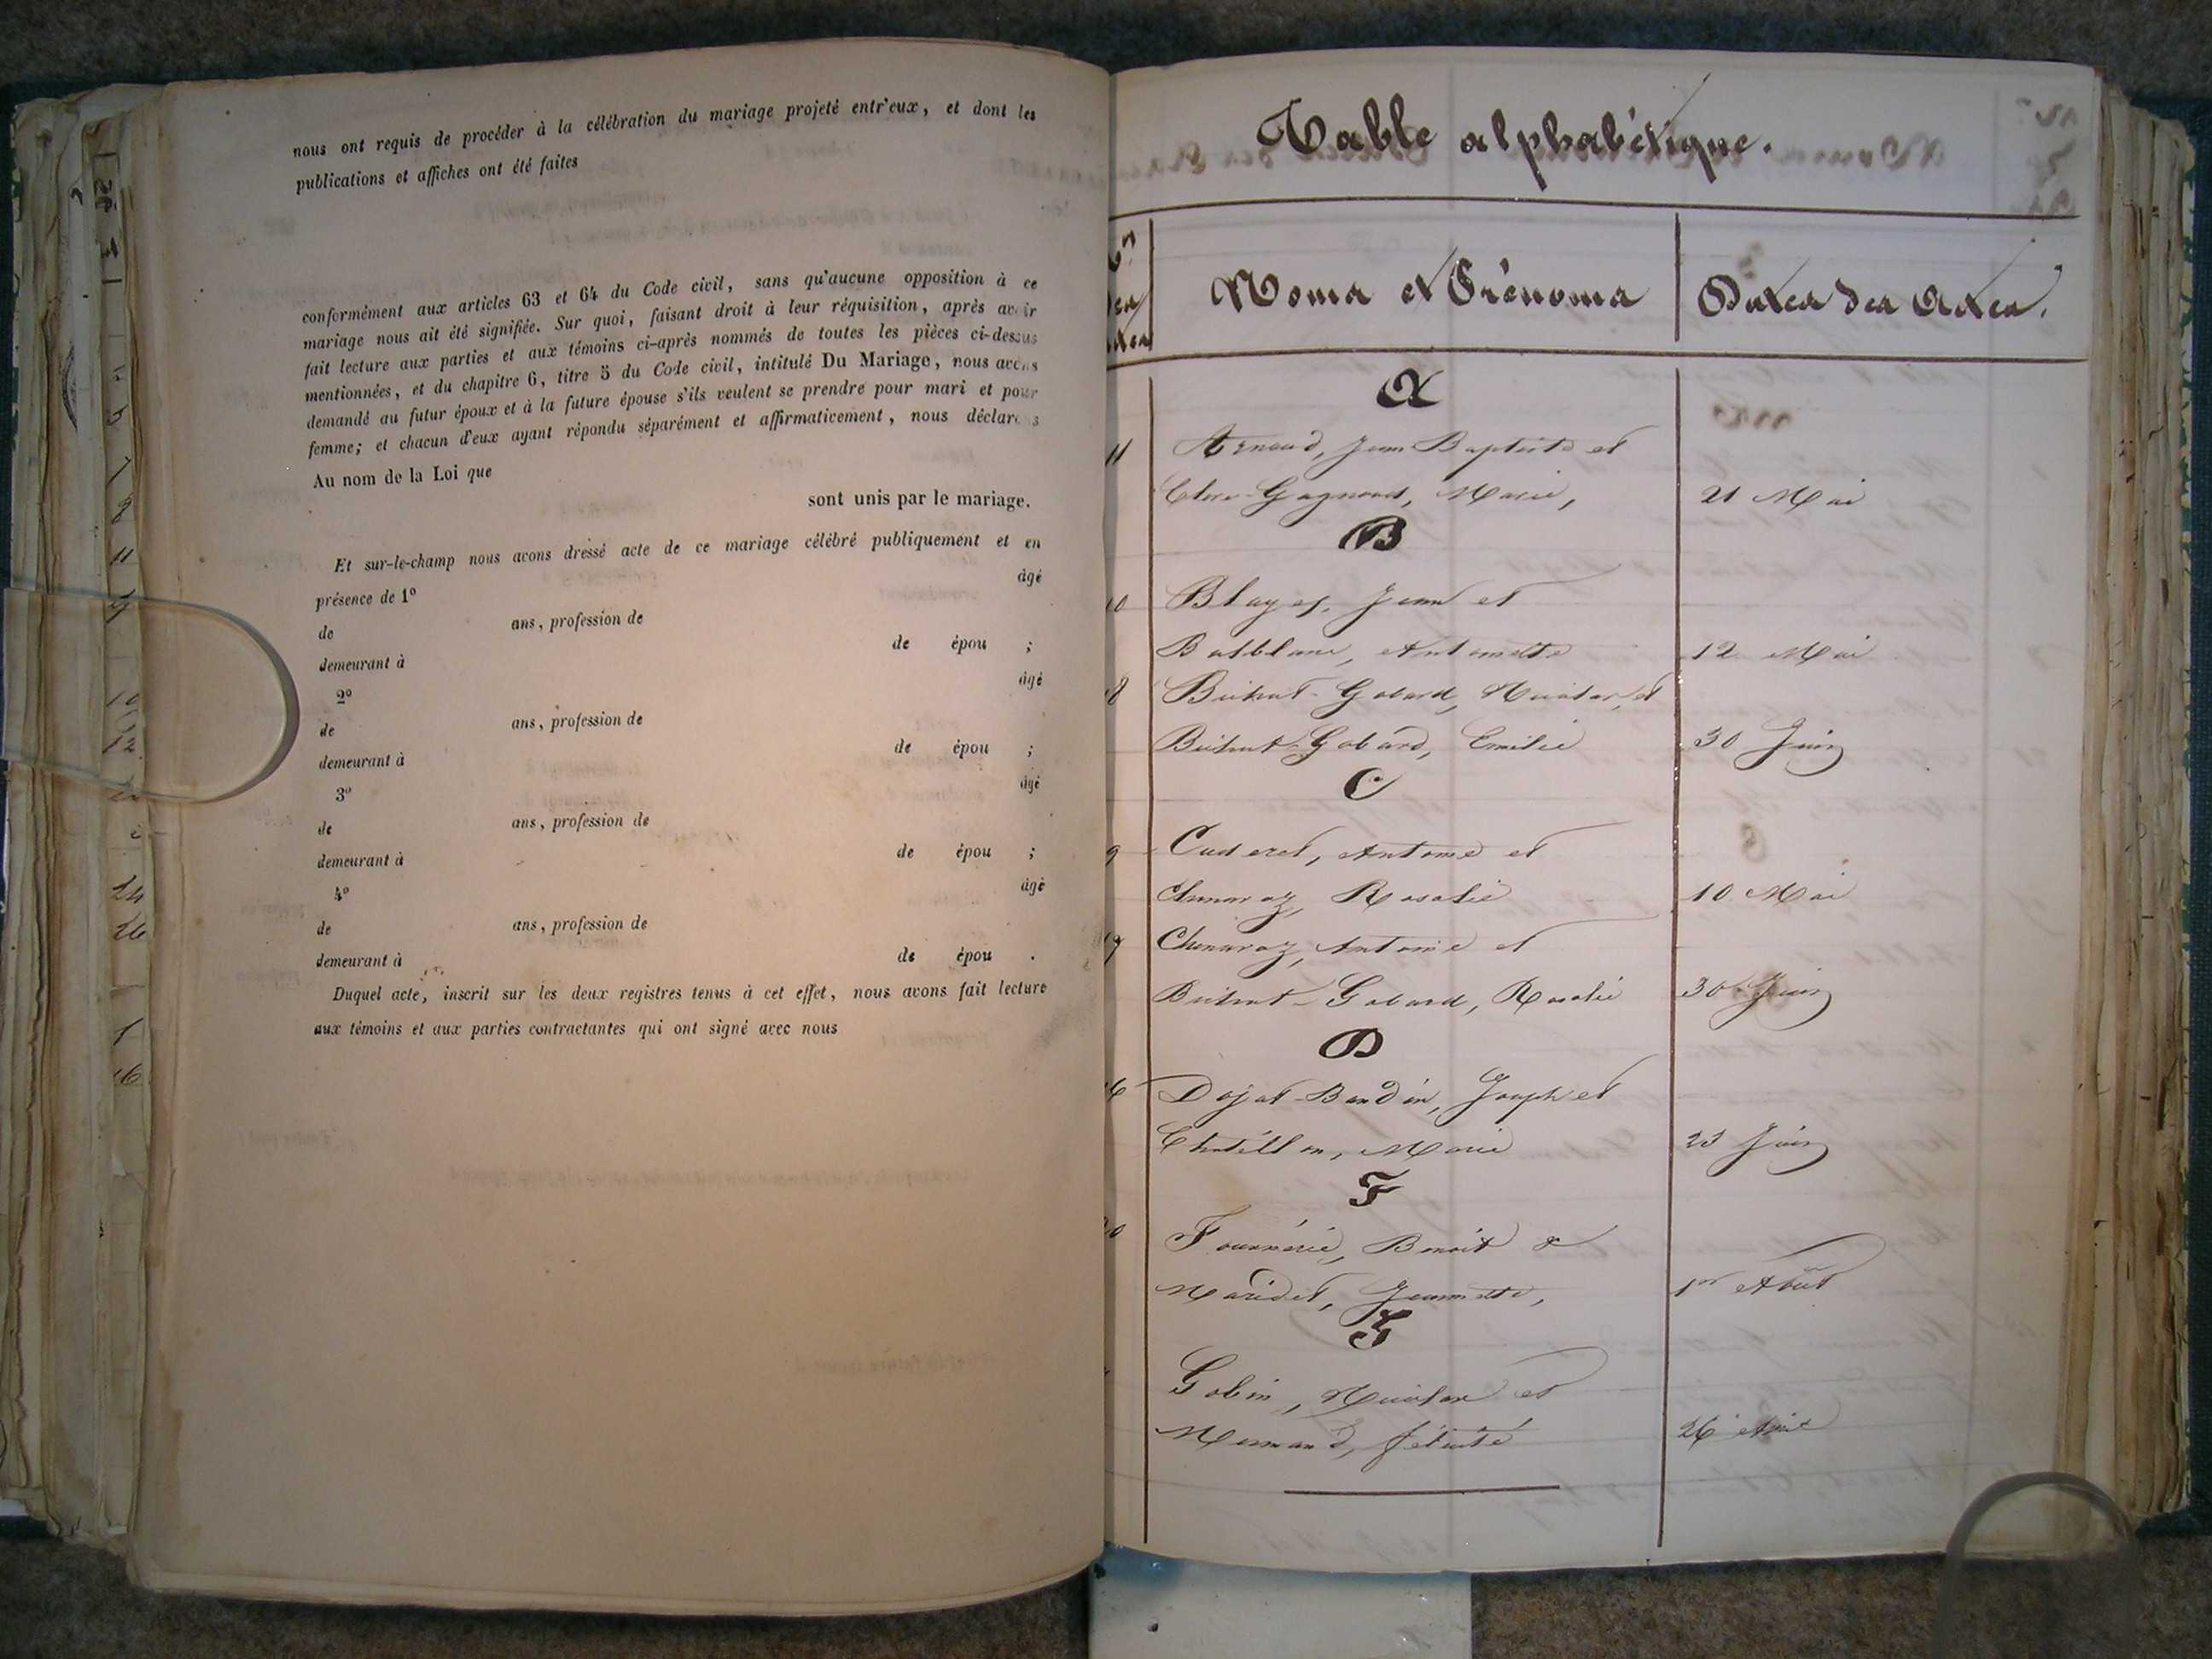 nous ont requis de procéder à la célébration du mariage projeté entr'eux, et dont les
publications et affiches ont été faites
conformément aux articles 63 et 64 du Code civil, sans qu'aucune opposition à ce
mariage nous ait été signifiée. Sur quoi, faisant droit à leur réquisition, après avoir
fait lecture aux parties et aux témoins ci-après nommés de toutes les pièces ci-dessus
mentionnées, et du chapitre 6, titre 5 du Code civil, intitulé Du Mariage, nous avons
demandé au futur époux et à la future épouse s'ils veulent se prendre pour mari et pour
femme; et chacun d'eux ayant répondu séparément et affirmativement, nous déclarons
Au nom de la Loi que
sont unis par le mariage.
Et sur-le-champ nous avons dressé acte de ce mariage célébré publiquement et en
présence de 1º âgé
de ans, profession de
demeurant à de épou ;
2º âgé
de ans, profession de
demeurant à de épou ;
3º âgé
de ans, profession de
demeurant à de épou ;
4º âgé
de ans, profession de
demeurant à de épou .
Duquel acte, inscrit sur les deux registres tenus à cet effet, nous avons fait lecture
aux témoins et aux parties contractantes qui ont signé avec nous
Table alphabétique.
Noms et Prénoms Dates des Actes.
A
11 Arnaud, Jean Baptiste et
Marie, 21 Mai
B
10 Jean et
Antoinette 12 Mai
18 Gobard, Nicolas, et
Gobard, Emilie 30 Juin
C
9 Cuderet, Antoine et
Rosalie 10 Mai
Antoine et
Gobard, Rosalie 30 Juin
D
16 Dojat-Bandin, Joseph et
Chatillon, Marie 23 Juin
F
Benoit &
Maridet, Jeannette, 1er Août
G
Gobin, Nicolas et
félicité 26 Avril